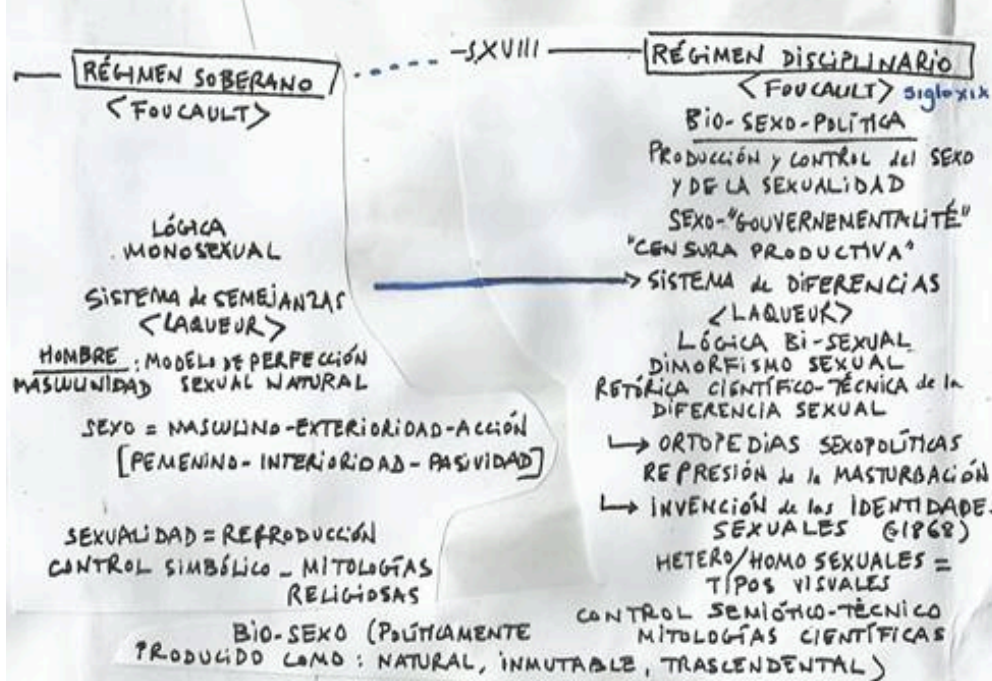 RÉGIMEN SOBERANO
<FOUCAULT>
LÓGICA
MONOSEXUAL
SISTEMA de SEMEJANZAS
<LAQUEUR>
HOMBRE: MODELO DE PERFECCIÓN
MASCULINIDAD SEXUAL NATURAL
SEXO = MASCULINO-EXTERIORIDAD-ACCIÓN
[FEMENINO-INTERIORIDAD-PASIVIDAD]
SEXUALIDAD = REPRODUCCIÓN
CONTROL SIMBÓLICO - MITOLOGÍAS
RELIGIOSAS
S.XVIII
RÉGIMEN DISCIPLINARIO
<FOUCAULT> siglo XIX
BIO-SEXO-POLÍTICA
PRODUCCIÓN y CONTROL del SEXO
Y DE LA SEXUALIDAD
SEXO-"GOUVERNEMENTALITÉ"
"CENSURA PRODUCTIVA"
SISTEMA de DIFERENCIAS
<LAQUEUR>
LÓGICA BI-SEXUAL
DIMORFISMO SEXUAL
RETÓRICA CIENTÍFICO-TÉCNICA de la
DIFERENCIA SEXUAL
↳ ORTOPEDIAS SEXOPOLÍTICAS
REPRESIÓN de la MASTURBACIÓN
↳ INVENCIÓN de las IDENTIDADE
SEXUALES (1868)
HETERO/HOMO SEXUALES =
TIPOS VISUALES
CONTROL SEMIÓTICO-TÉCNICO
MITOLOGÍAS CIENTÍFICAS
BIO-SEXO (POLÍTICAMENTE
PRODUCIDO COMO: NATURAL, INMUTABLE, TRASCENDENTAL)